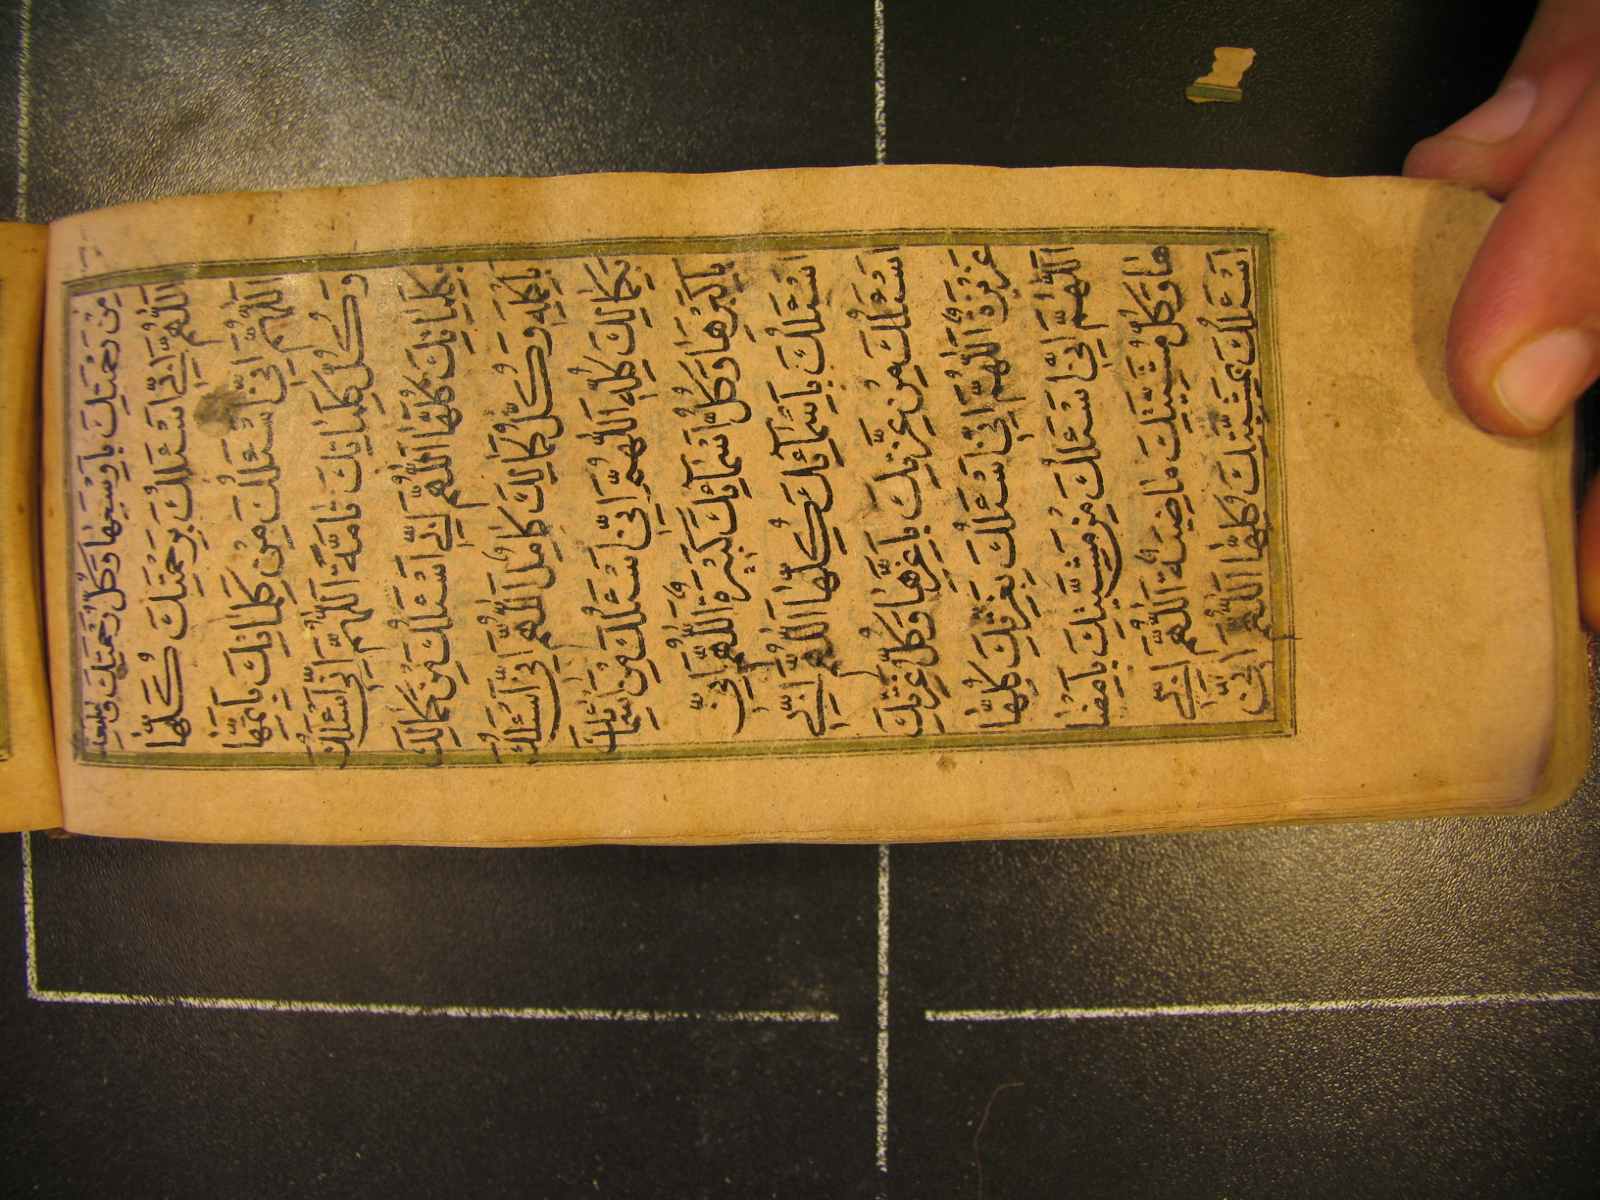 مِنْ رَحْمَتِكَ بِاَوْسَعِهَا وَكُلُّ رَحْمَتِكَ وَاسِعَة
اَللّٰهُمَّ اِنّٖى اَسْئَلُكَ بِرَحْمَتِكَ كُلِّهَا
اَللّٰهُمَّ اِنّٖى اَسْئَلُكَ مِنْ كَلِمَاتِكَ بِاَتَمِّهَا
وَكُلُّ كَلِمَاتِكَ تَامَّةٌ اَللّٰهُمَّ اِنّٖى اَسْئَلُكَ
بِكَلِمَاتِكَ كُلِّهَا اَللّٰهُمَّ اِنّٖى اَسْئَلُكَ مِنْ كَمَالِكَ
بِاَكْمَلِهٖ وَكُلُّ كَمَالِكَ كَامِلٌ اَللّٰهُمَّ اِنّٖى اَسْئَلُكَ
بِكَمَالِكَ كُلِّهٖ اَللّٰهُمَّ اِنّٖى اَسْئَلُكَ مِنْ اَسْمَائِكَ
بِاَكْبَرِهَا وَكُلُّ اَسْمَآئِكَ كَبٖيرَةٌ اَللّٰهُمَّ اِنّٖى
اَسْئَلُكَ بِاَسْمَآئِكَ كُلِّهَا اَللّٰهُمَّ اِنّٖى
اَسْئَلُكَ مِنْ عِزَّتِكَ بِاَعَزِّهَا وَكُلُّ عِزَّتِكَ
عَزٖيزَةٌ اَللّٰهُمَّ اِنّٖى اَسْئَلُكَ بِعِزَّتِكَ كُلِّهَا
اَللّٰهُمَّ اِنّٖى اَسْئَلُكَ مِنْ مَشِيَّتِكَ بِاَمْضَا
هَا وَكُلُّ مَشِيَّتِكَ مَاضِيَةٌ اَللّٰهُمَّ اِنّٖى
اَسْئَلُكَ بِمَشِيَّتِكَ كُلِّهَا اَللّٰهُمَّ اِنّٖى